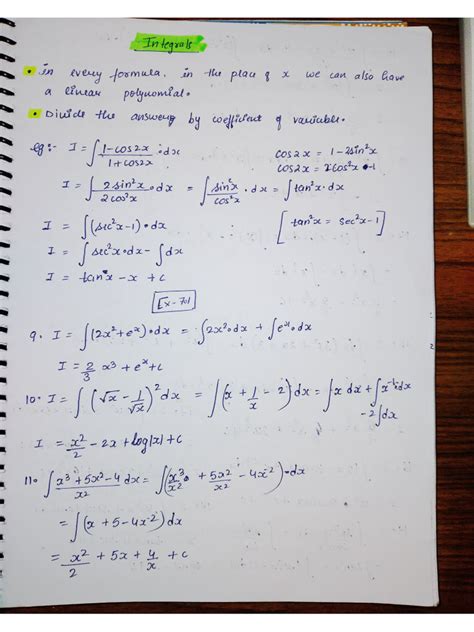 Integrals
• In every formula, in the place of x we can also have
a linear polynomial.
• Divide the answer by coefficient of variable.
eg:- I = ∫ (1-cos2x)/(1+cos2x) · dx    cos2x = 1-2sin²x
cos2x = 2cos²x-1
I = ∫ (2sin²x)/(2cos²x) · dx = ∫ (sin²x)/(cos²x) · dx = ∫ tan²x · dx
I = ∫ (sec²x-1) · dx    [tan²x = sec²x-1]
I = ∫ sec²x · dx - ∫ dx
I = tan x - x + c
Ex-7.1
9. I = ∫ (2x²+eˣ) · dx = ∫ 2x² · dx + ∫ eˣ · dx
I = 2/3 x³ + eˣ + c
10. I = ∫ (√x - 1/√x)² dx = ∫ (x + 1/x - 2) dx = ∫ x dx + ∫ x⁻¹ dx
-2∫dx
I = x²/2 - 2x + log|x| + c
11. ∫ (x³+5x²-4)/x² dx = ∫ (x³/x² + 5x²/x² - 4x⁻²) · dx
= ∫ (x + 5 - 4x⁻²) dx
= x²/2 + 5x + 4/x + c